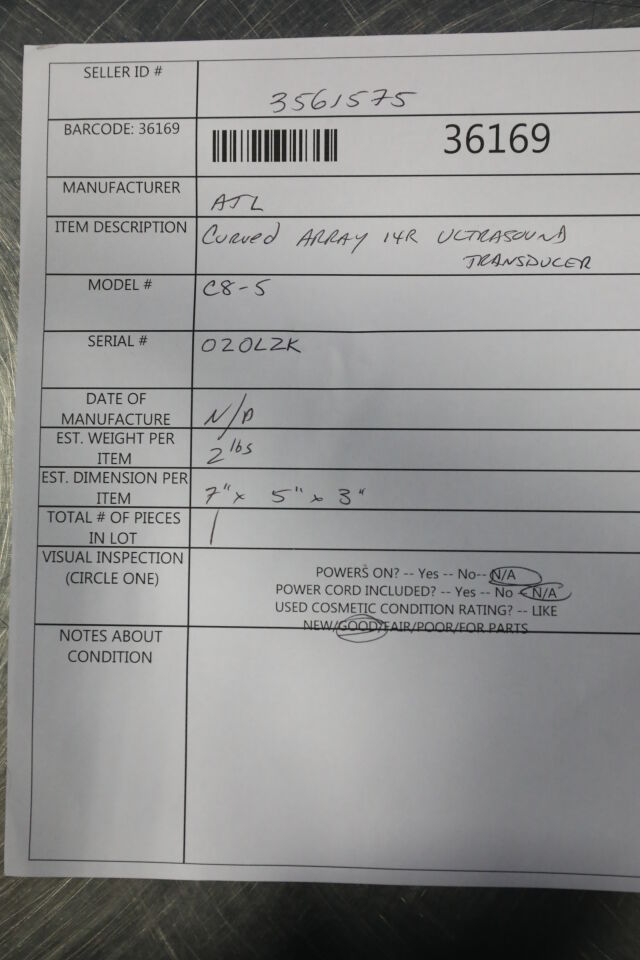 SELLER ID #
3561575
BARCODE: 36169
36169
MANUFACTURER
ATL
ITEM DESCRIPTION
CURVED ARRAY 14R ULTRASOUND
TRANSDUCER
MODEL #
C8-5
SERIAL #
020LZK
DATE OF
MANUFACTURE
N/A
EST. WEIGHT PER
ITEM
2 lbs
EST. DIMENSION PER
ITEM
7" x 5" x 3"
TOTAL # OF PIECES
IN LOT
1
VISUAL INSPECTION
(CIRCLE ONE)
POWERS ON? -- Yes -- No-- N/A
POWER CORD INCLUDED? -- Yes -- No -- N/A
USED COSMETIC CONDITION RATING? -- LIKE
NEW/GOOD/FAIR/POOR/FOR PARTS
NOTES ABOUT
CONDITION